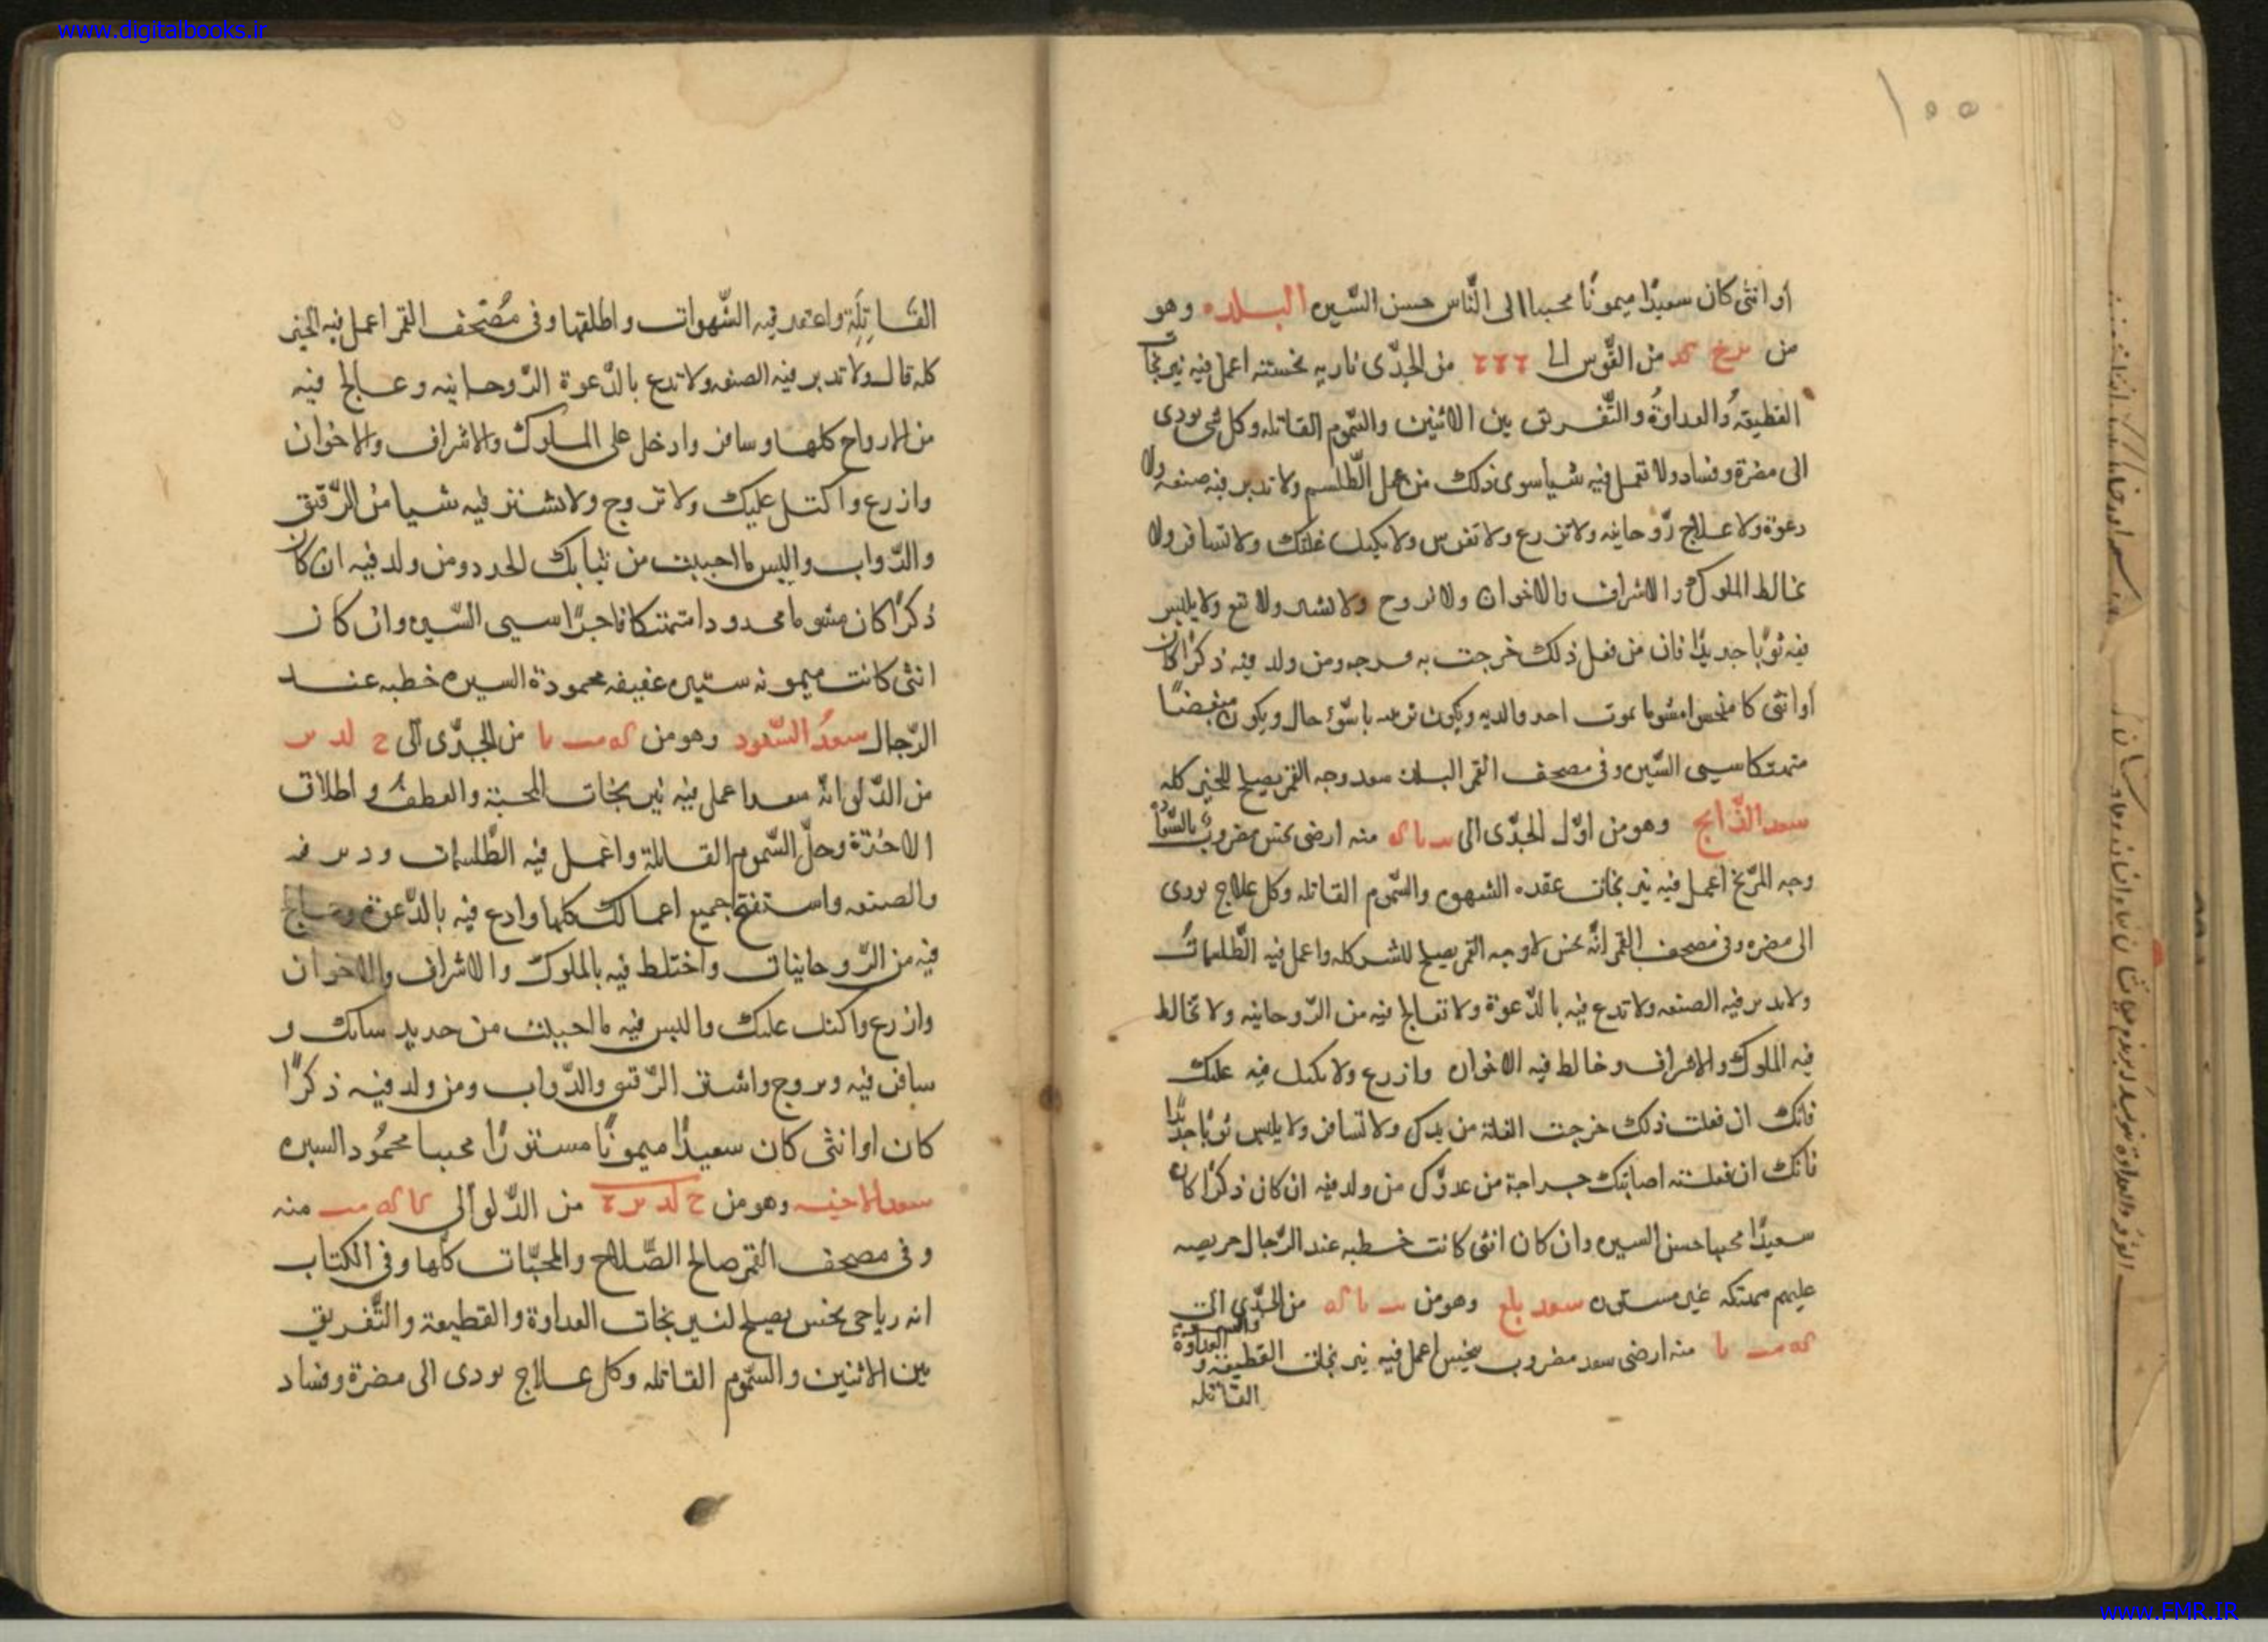 www.digitalbooks.ir
١٥٥
او انثى كان سعيدًا ميمونًا محببا الى النّاس حسن السّيره البلده وهو
من من القوس الى من الجدّى ناريه نحسته اعمل فيه نيرنجات
القطيعهُ والعداوةُ والتّفريق بين الاثنين والسّموم القاتله وكل شى يودى
الى مضرة وفساد ولا تعمل فيه شيا سوى ذلك من عمل الطّلسم ولا تدبر فيه صنعه ولا
دعوة ولا علاج رّوحانيه ولا تزرع ولا تغرس ولا تكيل غلتك ولا تسافر ولا
تخالط الملوك والاشراف والاخوان ولا تزوج ولا تشتر ولا تبع ولا يلبس
فيه ثوبًا جديدًا فان من فعل ذلك خرجت به ومن ولد فيه ذكرًا كان
او انثى كا منحسا مشوما بموت احد والديه ويكون باسّوء حال ويكون مبغضًا
متهتكا سيى السّيره وفى مصحف القمر البلده سعد وجه القمر يصلح للخير كله
سعد الذّابح وهو من اوّل الجدّى الى منه ارضى نحس مضروب بالسّواد
وجه المرّيخ اعمل فيه نيرنجات عقده الشهوه والسّموم القاتله وكل علاج يودى
الى مضره وفى مصحف القمر انّه نحس وجه القمر يصلح للشر كله واعمل فيه الطّلسمات
ولا تدبر فيه الصنعه ولا تدع فيه بالدّعوة ولا تعالج فيه من الرّوحانيه ولا تخالط
فيه الملوك والاشراف وخالط فيه الاخوان وازرع ولا تكيل فيه غلتك
فانك ان فعلت ذلك خرجت الغلة من يدك ولا تسافر ولا يلبس ثوبًا جديدًا
فانك ان فعلته اصابتك جراحة من عدوّك من ولد فيه ان كان ذكرًا كان
سعيدًا محببا حسن السيره وان كان انثى كانت خطبه عند الرّجال حريصه
عليهم متهتكه غير مستوره سعد بلع وهو من من الجدّى الى
منه ارضى سعد مضروب بنحس اعمل فيه نيرنجات القطيعة و
العداوة والسموم
القاتله
القَاتِلَة واعقد فيه الشّهوات واطلقها وفى مُصْحف القمر اعمل فيه الخير
كله قال ولا تدبر فيه الصنعه ولا تدع بالدّعوة الرّوحانيه وعالج فيه
من الارواح كلها وسافر وادخل على الملوك والاشراف والاخوان
وازرع واكتل عليك ولا تزوج ولا تشتر فيه شيا من الرّقيق
والدّواب والبس ما احببت من ثيابك الجدد ومن ولد فيه ان كان
ذكرًا كان مشوما محدودا متهتكا فاجرًا سيى السّيره وان كان
انثى كانت ميمونه ستيره عفيفه محمودة السيره خطبه عند
الرّجال سعدُ السّعود وهو من من الجدّى الى
من الدّلو انّه سعد اعمل فيه نيرنجات المحبّة والعطف و اطلاق
الاخذة وحلّ السّموم القاتلة واعمل فيه الطّلسمات ودبر فيه
والصنعه واستفتح جميع اعمالك كلها وادع فيه بالدّعوة وعالج
فيه من الرّوحانيات واختلط فيه بالملوك والاشراف والاخوان
وازرع واكتل عليك والبس فيه ما احببت من جديد ثيابك و
سافر فيه وتزوج واشتر الرّقيق والدّواب ومن ولد فيه ذكرًا
كان او انثى كان سعيدًا ميمونًا مستورًا محببا محمُود السيره
سعد الاخبيه وهو من من الدّلو الى منه
وفى مصحف القمر صالح الصّلاح والمحبّات كلّها وفى الكتاب
انه رياحى نحس يصلح لنيرنجات العداوة والقطيعة والتّفريق
بين الاثنين والسّموم القاتله وكل علاج يودى الى مضرة وفساد
www.FMR.IR